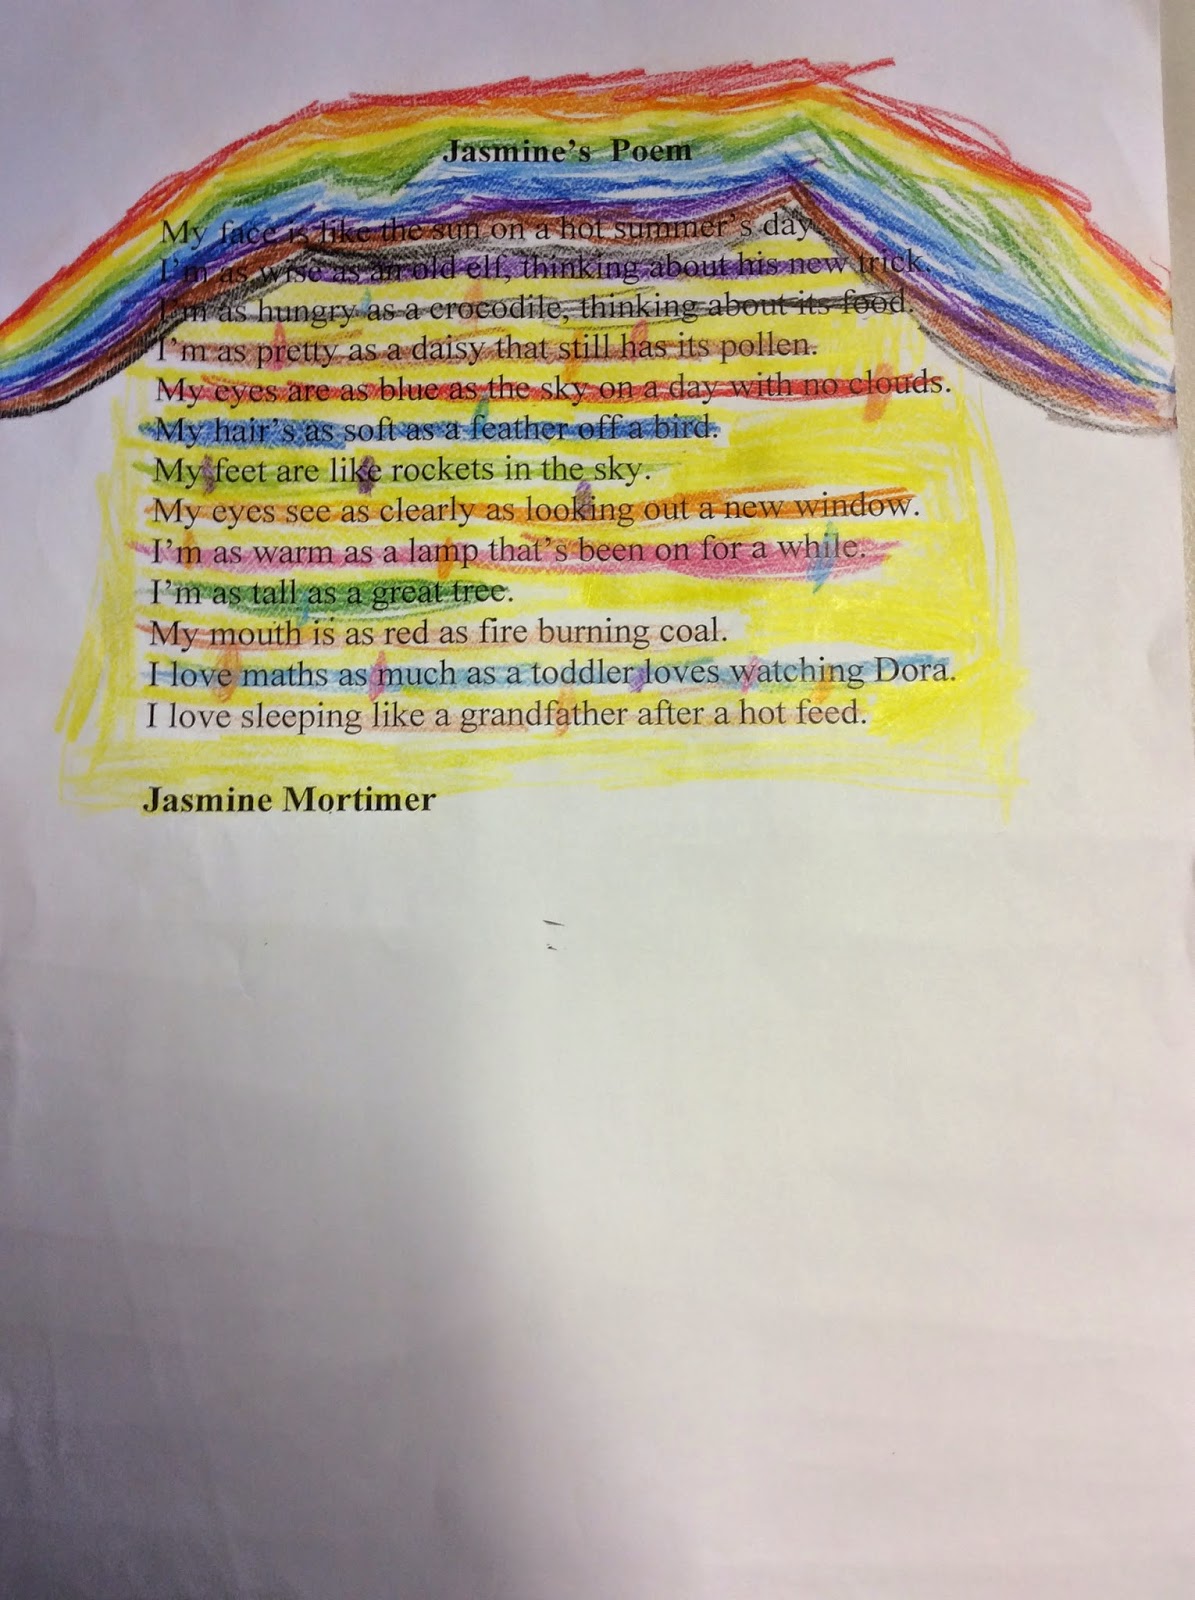 Jasmine’s Poem
My face is like the sun on a hot summer’s day.
I’m as wise as an old elf, thinking about his new trick.
I’m as hungry as a crocodile, thinking about its food.
I’m as pretty as a daisy that still has its pollen.
My eyes are as blue as the sky on a day with no clouds.
My hair’s as soft as a feather off a bird.
My feet are like rockets in the sky.
My eyes see as clearly as looking out a new window.
I’m as warm as a lamp that’s been on for a while.
I’m as tall as a great tree.
My mouth is as red as fire burning coal.
I love maths as much as a toddler loves watching Dora.
I love sleeping like a grandfather after a hot feed.
Jasmine Mortimer